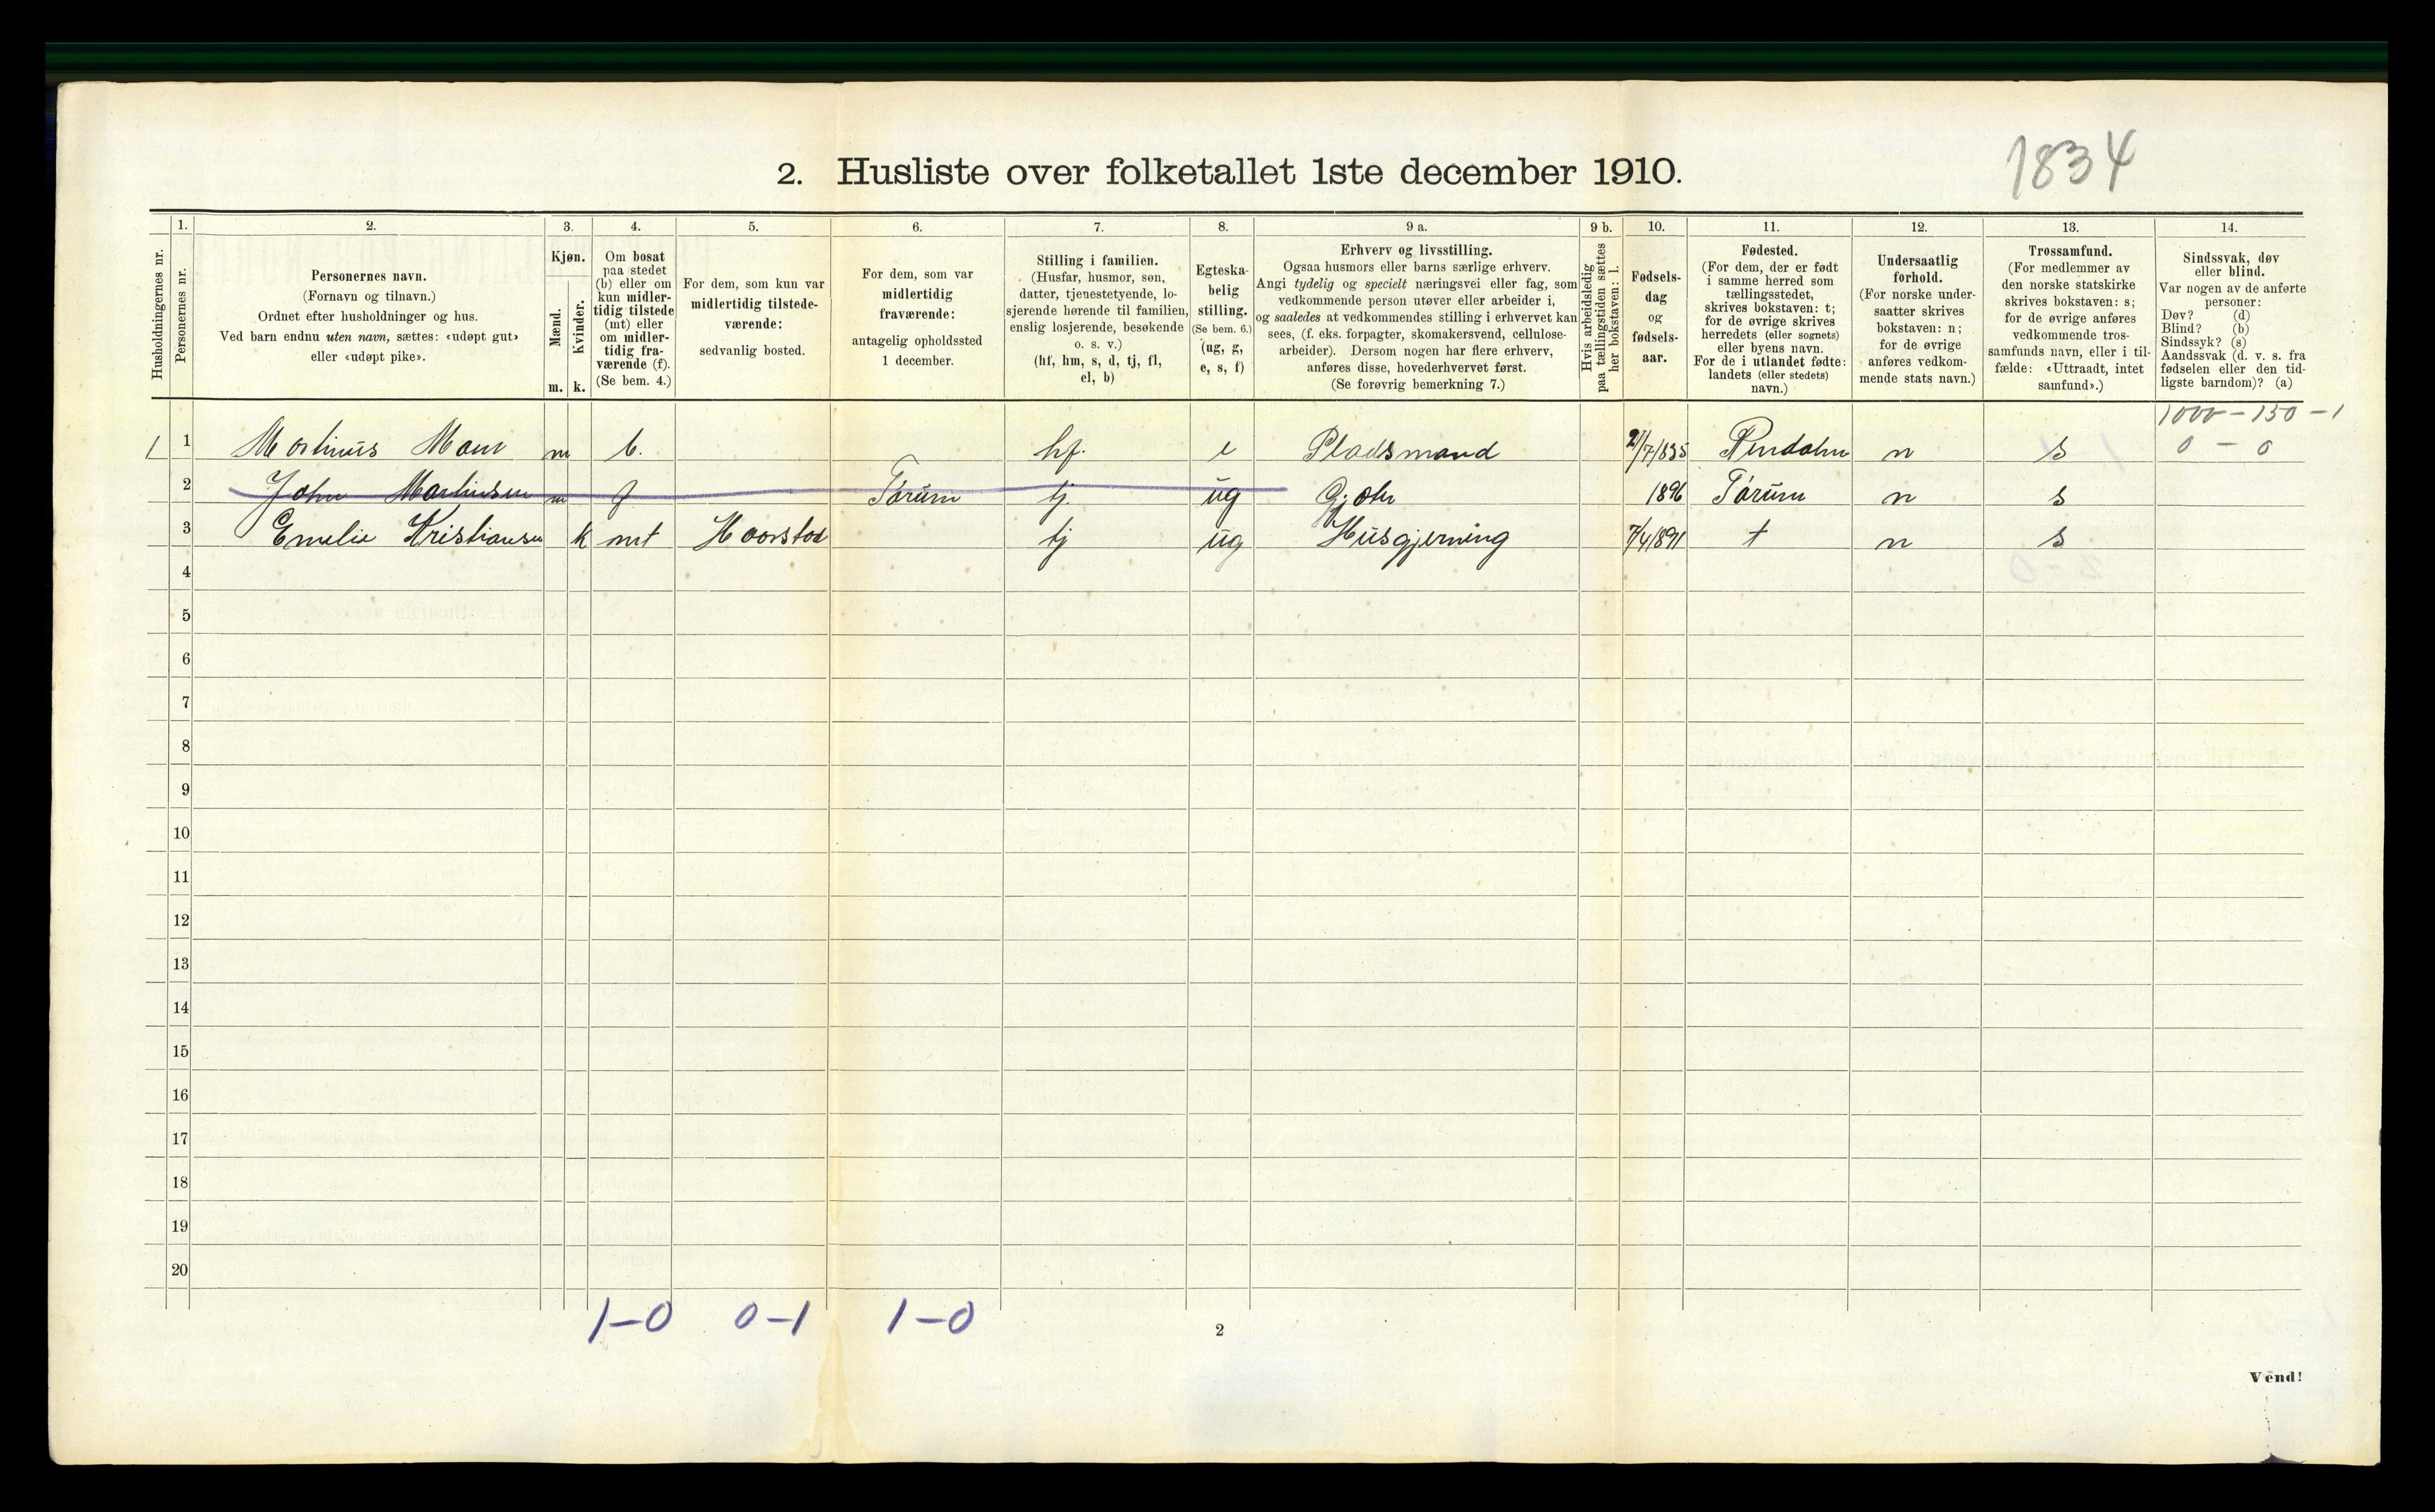 1834
2. Husliste over folketallet 1ste december 1910.
Husholdningernes nr.
1.
Personernes nr.
2.
Personernes navn.
(Fornavn og tilnavn.)
Ordnet efter husholdninger og hus.
Ved barn endnu uten navn, sættes: «udøpt gut»
eller «udøpt pike».
3.
Kjøn.
Mænd.
m.
Kvinder.
k.
4.
Om bosat
paa stedet
(b) eller om
kun midler-
tidig tilstede
(mt) eller
om midler-
tidig fra-
værende (f).
(Se bem. 4.)
5.
For dem, som kun var
midlertidig tilstede-
værende:
sedvanlig bosted.
6.
For dem, som var
midlertidig
fraværende:
antagelig opholdssted
1 december.
7.
Stilling i familien.
(Husfar, husmor, søn,
datter, tjenestetyende, lo-
sjerende hørende til familien,
enslig losjerende, besøkende
o. s. v.)
(hf, hm, s, d, tj, fl,
el, b)
8.
Egteska-
belig
stilling.
(Se bem. 6.)
(ug, g,
e, s, f)
9 a.
Erhverv og livsstilling.
Ogsaa husmors eller barns særlige erhverv.
Angi tydelig og specielt næringsvei eller fag, som
vedkommende person utøver eller arbeider i,
og saaledes at vedkommendes stilling i erhvervet kan
sees, (f. eks. forpagter, skomakersvend, cellulose-
arbeider). Dersom nogen har flere erhverv,
anføres disse, hovederhvervet først.
(Se forøvrig bemerkning 7.)
9 b.
Hvis arbeidsledig
paa tællingstiden sættes
her bokstaven: l.
10.
Fødsels-
dag
og
fødsels-
aar.
11.
Fødested.
(For dem, der er født
i samme herred som
tællingsstedet,
skrives bokstaven: t;
for de øvrige skrives
herredets (eller sognets)
eller byens navn.
For de i utlandet fødte:
landets (eller stedets)
navn.)
12.
Undersaatlig
forhold.
(For norske under-
saatter skrives
bokstaven: n;
for de øvrige
anføres vedkom-
mende stats navn.)
13.
Trossamfund.
(For medlemmer av
den norske statskirke
skrives bokstaven: s;
for de øvrige anføres
vedkommende tros-
samfunds navn, eller i til-
fælde: «Uttraadt, intet
samfund».)
14.
Sindssvak, døv
eller blind.
Var nogen av de anførte
personer:
Døv? (d)
Blind? (b)
Sindssyk? (s)
Aandssvak (d. v. s. fra
fødselen eller den tid-
ligste barndom)? (a)
1000 – 150 – 1
1 1 Martinus Moen m b. hf. e Pladsmand 21/7/835 Rindalen n s 0 – 0
2 John Martinsen m f Tørum tj. ug Gjæter 1896 Tørum n s
3 Emelie Kristiansen k mt Haarstad tj ug Husgjerning 7/4/891 t n s
4
5
6
7
8
9
10
11
12
13
14
15
16
17
18
19
20
1–0 0–1 1–0
2
Vend!